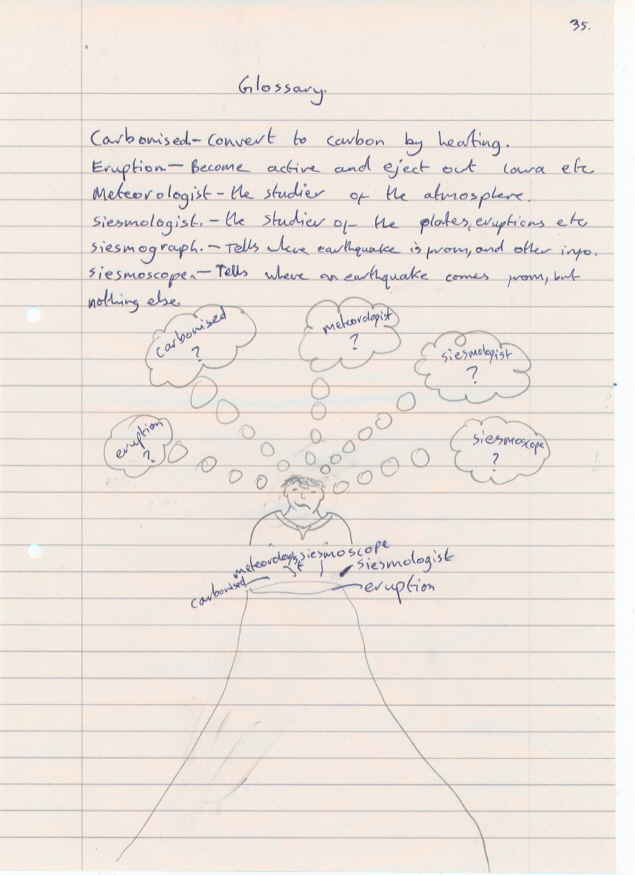 35.
Glossary.
Carbonised - Convert to carbon by heating.
Eruption - Become active and eject out lava etc
Meteorologist - the studier of the atmosphere.
Siesmologist. - the studier of the plates, eruptions etc
siesmograph. - Tells where earthquake is from, and other info.
siesmoscope. - Tells where an earthquake comes from, but
nothing else.
carbonised
?
meteorologist
?
siesmologist
?
eruption
?
siesmoscope
?
meteorologist
siesmoscope
siesmologist
carbonised
eruption